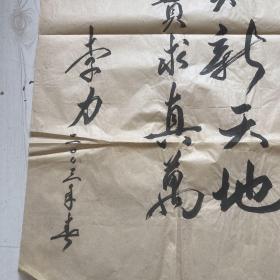 新天地
貴求真萬
李力
二〇〇三年春